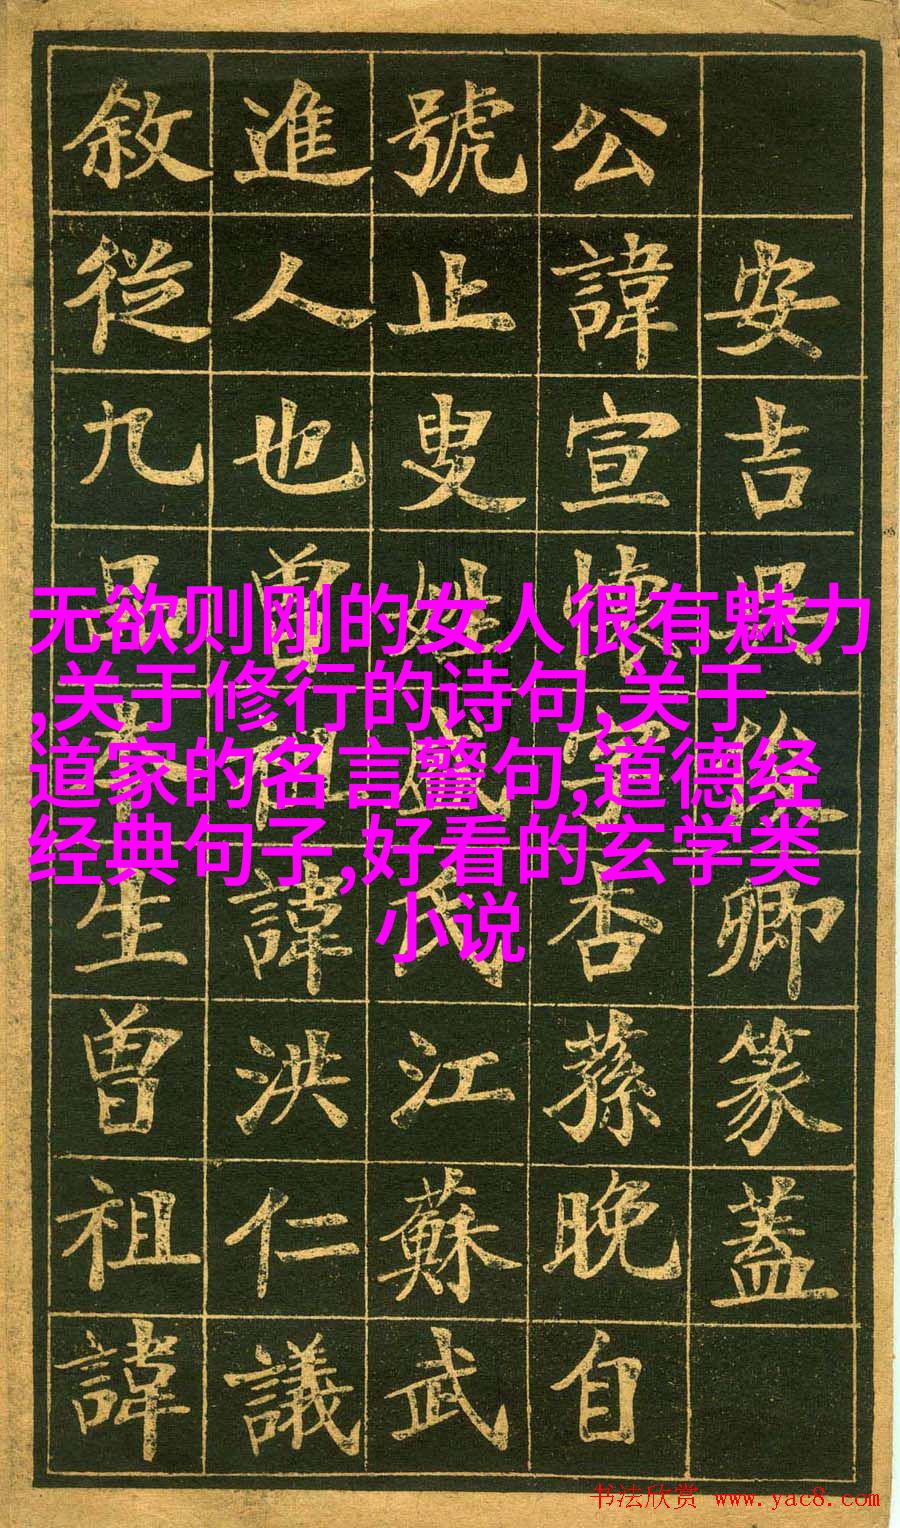 安吉吳俊卿篆蓋
公諱宣懷字杏蓀晚自
號止叟姓盛氏江蘇武
進人也曾祖諱洪仁議
敘從九品本生曾祖諱
无欲则刚的女人很有魅力
,关于修行的诗句,关于
道家的名言警句,道德经
经典句子,好看的玄学类
小说
书法欣赏 www.yac8.com